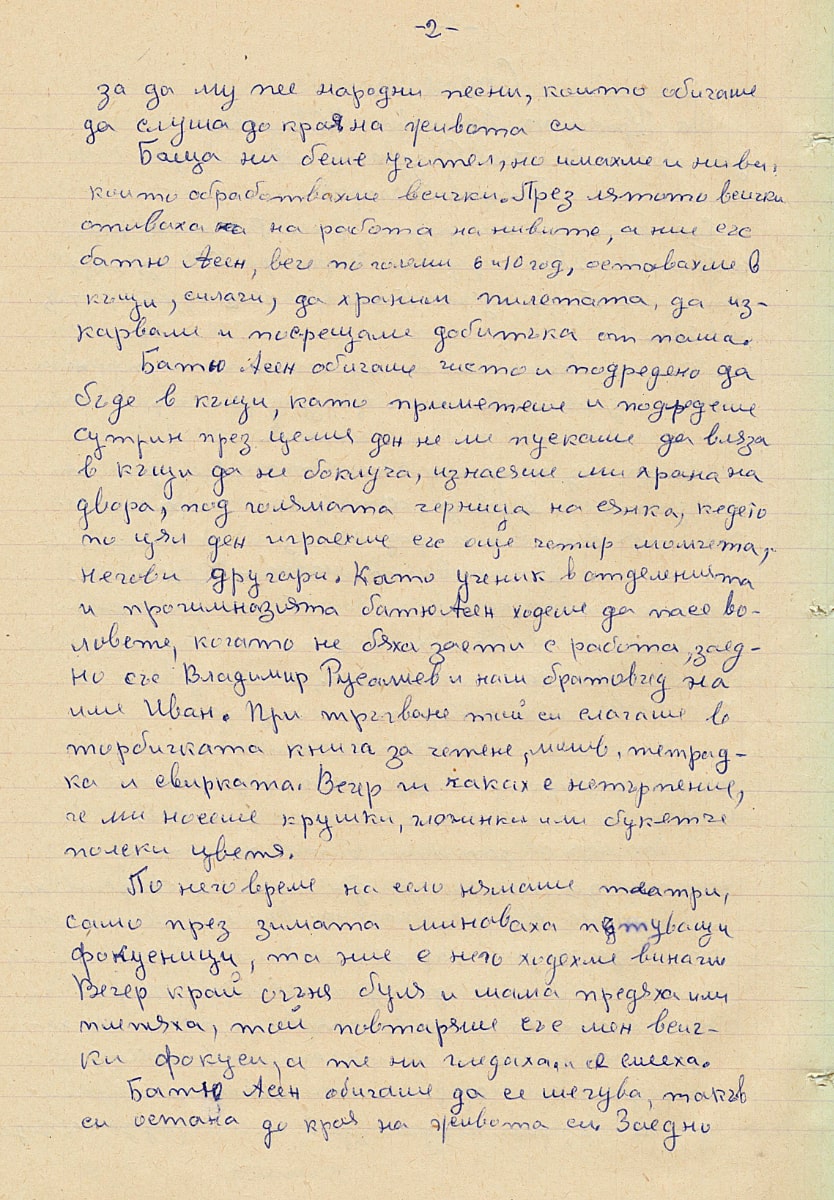 -2-
за да му пее народни песни, които обичаше
да слуша до края на живота си
Баща ни беше учител, но имахме и ниви,
които обработвахме всички. През лятото всички
отиваха на работа на нивите, а ние със
батю Асен, вече по големи 6 и 10 год, оставахме в
къщи, силачи, да храним пилетата, да из-
карвали и посрещаме добитъка от паша.
Батю Асен обичаше чисто и подредено да
бъде в къщи, като приметеше и подредеше
сутрин през целия ден не ме пускаше да вляза
в къщи да не боклуча, изнасяше ми храна на
двора, под голямата черница на сянка, кедето
по цял ден играехме със още четир момчета,
негови другари. Като ученик в отделенията
и прогимназията батю Асен ходеше да пасе во-
ловете, когато не бяха заети с работа, заед-
но със Владимир Русалиев и наш братовчед на
име Иван. При тръгване той си слагаше в
торбичката книга за четене, молив, тетрад-
ка и свирката. Вечер ги чаках с нетърпение,
че ми носеше крушки, глогинки или букетче
полски цветя.
По него време на село нямаше театри,
само през зимата минаваха пътуващи
фокусници, та ние с него ходехме винаги
Вечер край огъня буля и мама предяха или
плетяха, той повтаряше със мен всич-
ки фокуси, а те ни гледаха и се смееха.
Батю Асен обичаше да се шегува, такъв
си остана до края на живота си. Заедно